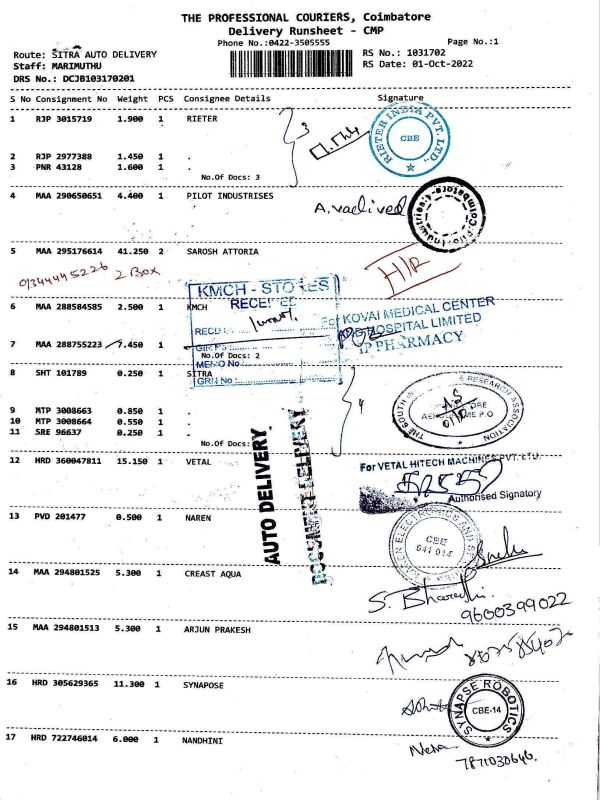 THE PROFESSIONAL COURIERS, Coimbatore
Delivery Runsheet - CMP
Phone No.:0422-3505555
Page No.:1
Route: SITRA AUTO DELIVERY
RS No.: 1031702
Staff: MARIMUTHU
RS Date: 01-Oct-2022
DRS No.: DCJB103170201
S No Consignment No Weight PCS Consignee Details Signature
1 RJP 3015719 1.900 1 RIETER
3
RIETER INDIA PVT. LTD.,
CBE
2 RJP 2977388 1.450 1 .
3 PNR 43128 1.600 1 .
No.Of Docs: 3
4 MAA 290650651 4.400 1 PILOT INDUSTRISES
5 MAA 295176614 41.250 2 SAROSH ATTORIA
2 Box
H/R
KMCH - STORES
RECEIVED
6 MAA 288584585 2.500 1 KMCH
For KOVAI MEDICAL CENTER
AND HOSPITAL LIMITED
IP PHARMACY
7 MAA 288755223 7.450 1
No.Of Docs: 2
MEMO No
GRN No :
8 SHT 101789 0.250 1 SITRA
4
9 MTP 3008663 0.850 1 .
10 MTP 3008664 0.550 1 .
11 SRE 96637 0.250 1 .
No.Of Docs:
RESEARCH ASSOCIATION
12 HRD 360047811 15.150 1 VETAL
AUTO DELIVERY
DOCUMENT DELIVERY
For VETAL HITECH MACHINES PVT. LTD.
Authorised Signatory
13 PVD 201477 0.500 1 NAREN
CBE
641 014
14 MAA 294801525 5.300 1 CREAST AQUA
9600399022
15 MAA 294801513 5.300 1 ARJUN PRAKESH
16 HRD 305629365 11.300 1 SYNAPOSE
SYNAPSE ROBOTICS
CBE-14
17 HRD 722746014 6.000 1 NANDHINI
7871030646.